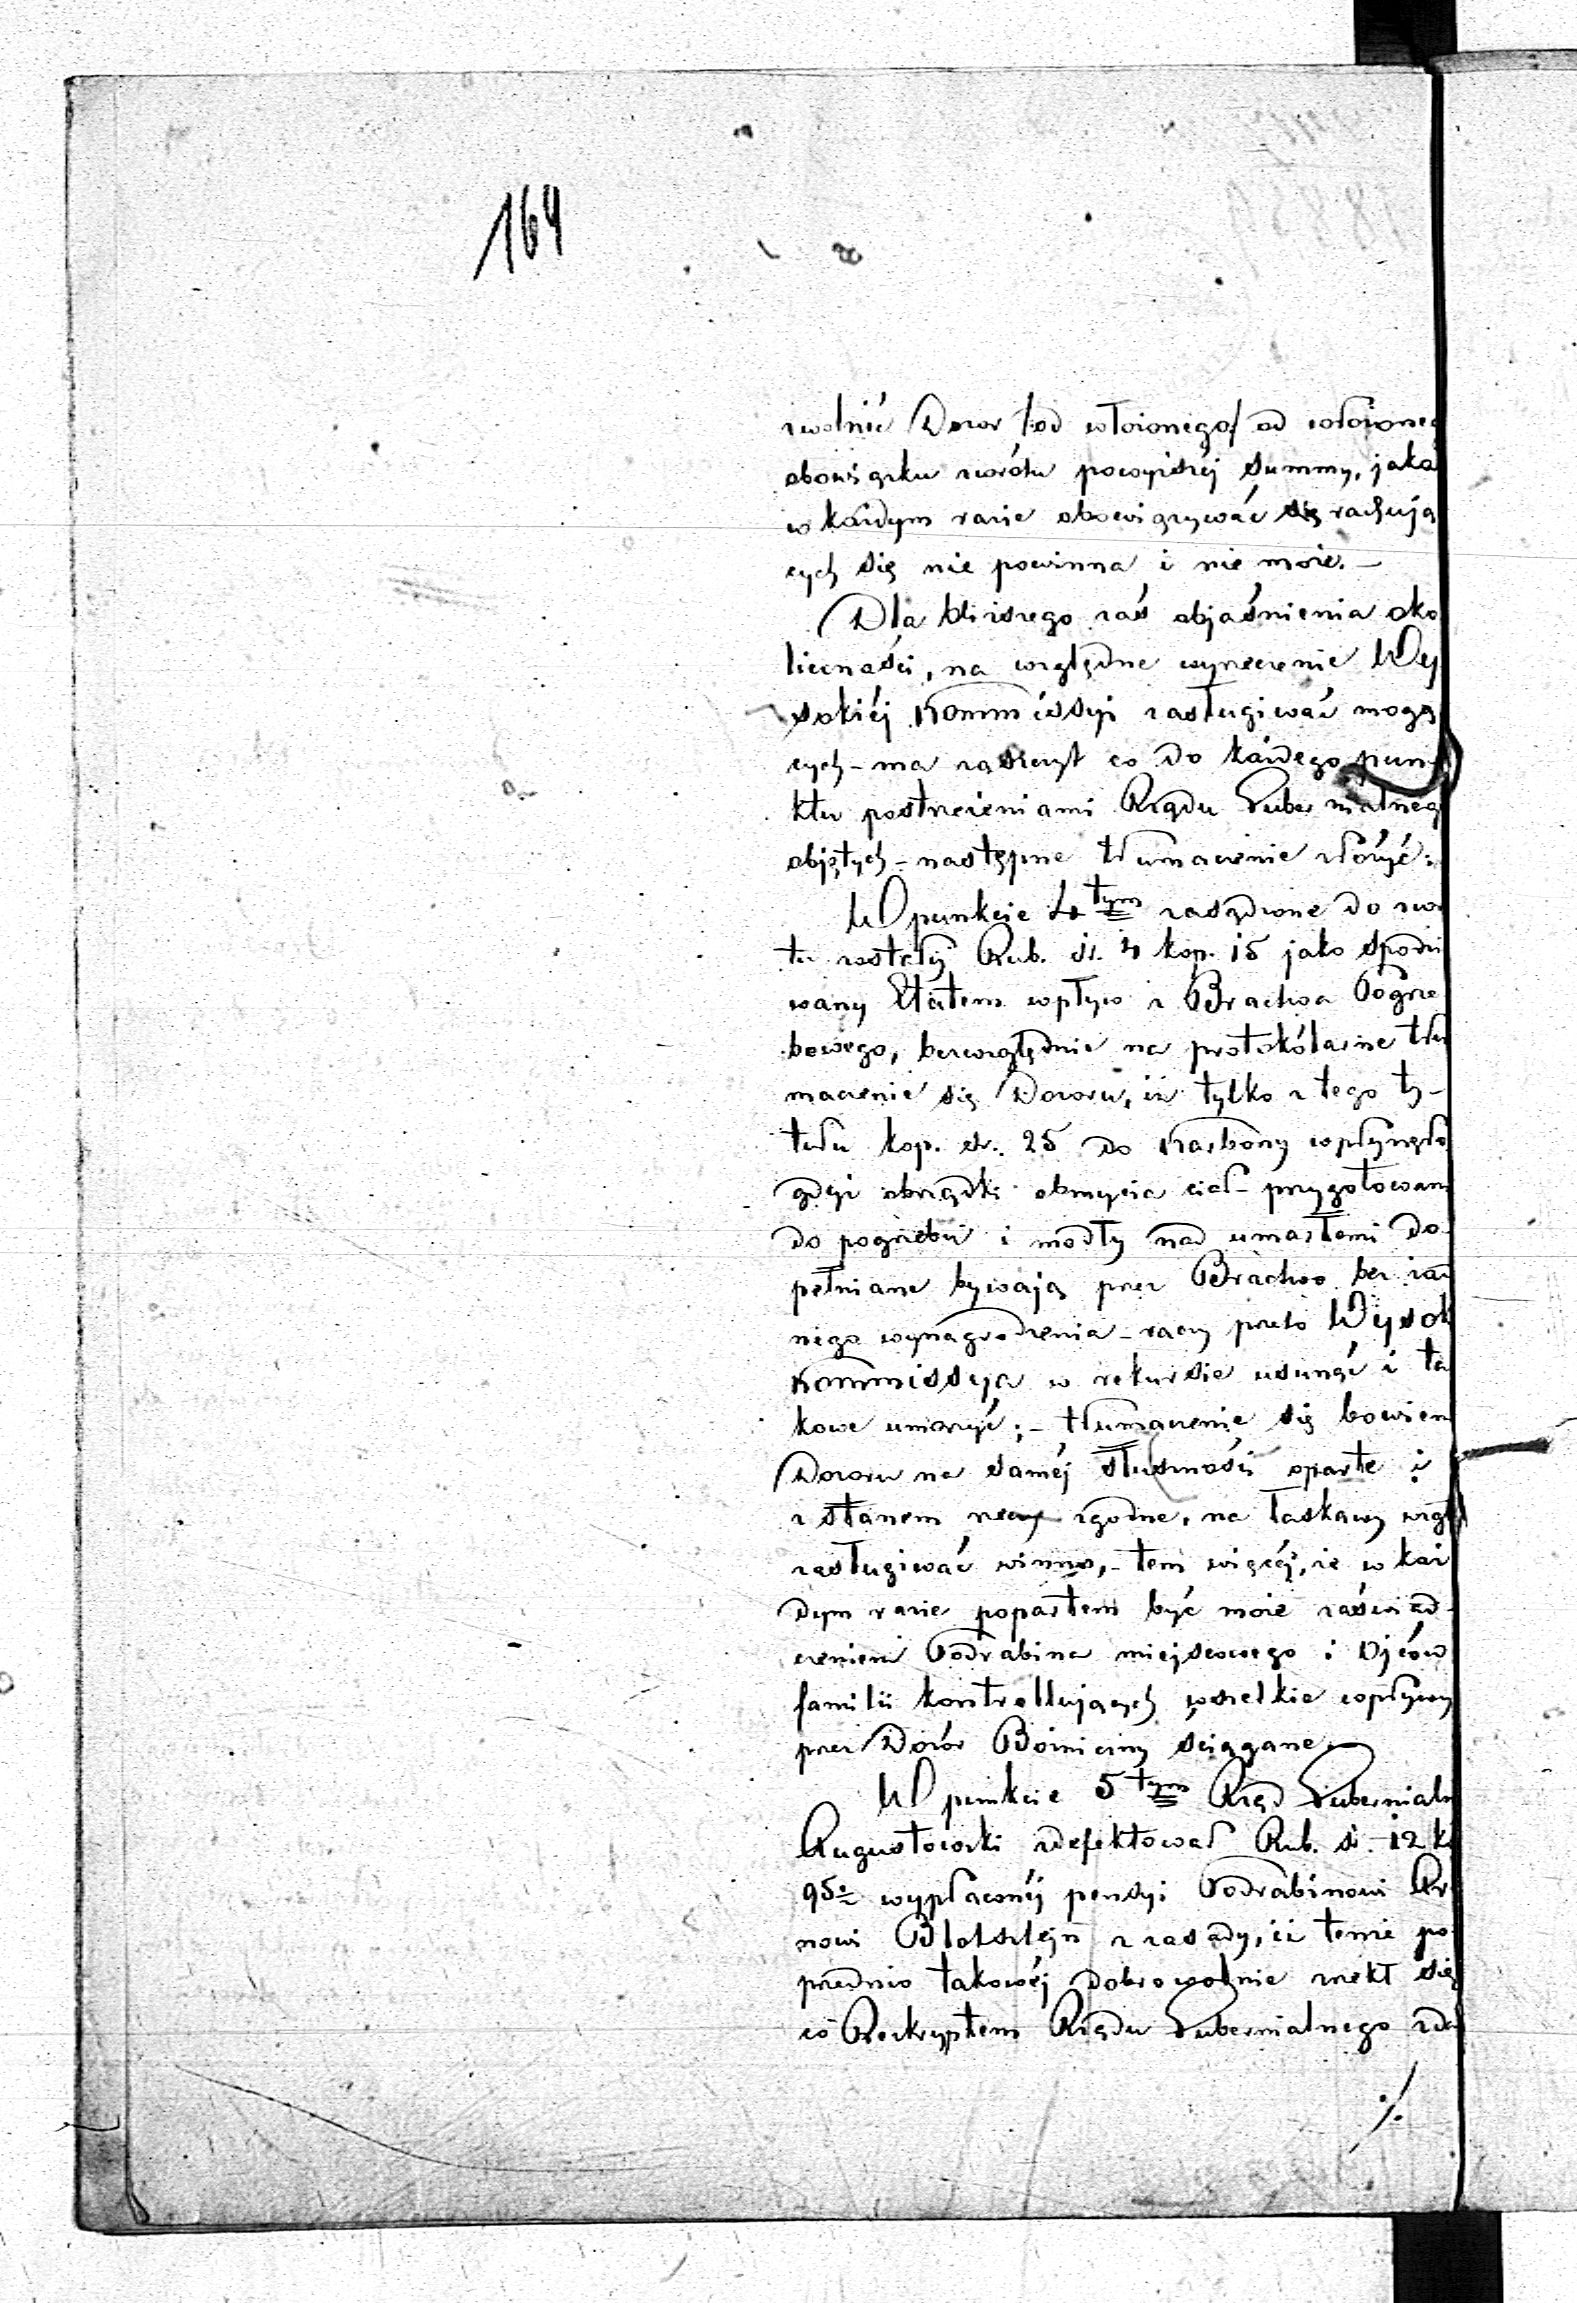 164
zwolnić Dozor /od włożonego/ od włożoneg
obowiązku zwrótu powyższéj summy, jaka
w każdym razie obowiązywać się rachują
cych się nie powinna i nie może. —
Dla bliższego zaś objaśnienia oko
liczności, na względne wyrzeczenie Wy
sokiéj Kommissyi zasługiwać mogą
cych – ma zaszczyt co do każdego pun-
ktu postrzeżeniami Rządu Gubernialneg
objętych – następne tłumaczenie złożyć:
W punkcie 4tym zasądzone do zwr
tu zostały Rub. sr. 4 kop. 15 jako spodzi
wany Etatem wpływ z Bractwa Pogrze
bowego, bezwzględnie na protokólarne tłu
maczenie się Dozoru, iż tylko z tego ty-
tułu kop. sr. 25 do Karbony wpłynęło
gdyż obrządki obmycia ciał – przygotowani
do pogrzebu i modły nad umarłemi do-
pełniane bywają przez Bractwo bez żad
nego wynagrodzenia – raczy przeto Wysok
Kommissya w rekursie usunąć i ta
kowe umorzyć; – tłumaczenie się bowiem
Dozoru na saméj słuszności oparte i
z stanem rzeczy zgodne, na łaskawy wzgl
zasługiwać winno, – tem więcéj, że w każ
dym razie popartem być może zaświad-
czeniem Podrabina miejscowego i Ojców
familii kontrollujących wszelkie wpływy
przez Dozór Bożniczny ściągane.
W punkcie 5tym Rząd Gubernialn
Augustowski zdefektował Rub. sr. 12 k
95. wypłaconéj pensyi Podrabinowi
nowi z zasady, iż tenże po-
przednio takowéj dobrowolnie zrzekł się
co Reskryptem Rządu Gubernialnego zda
./.